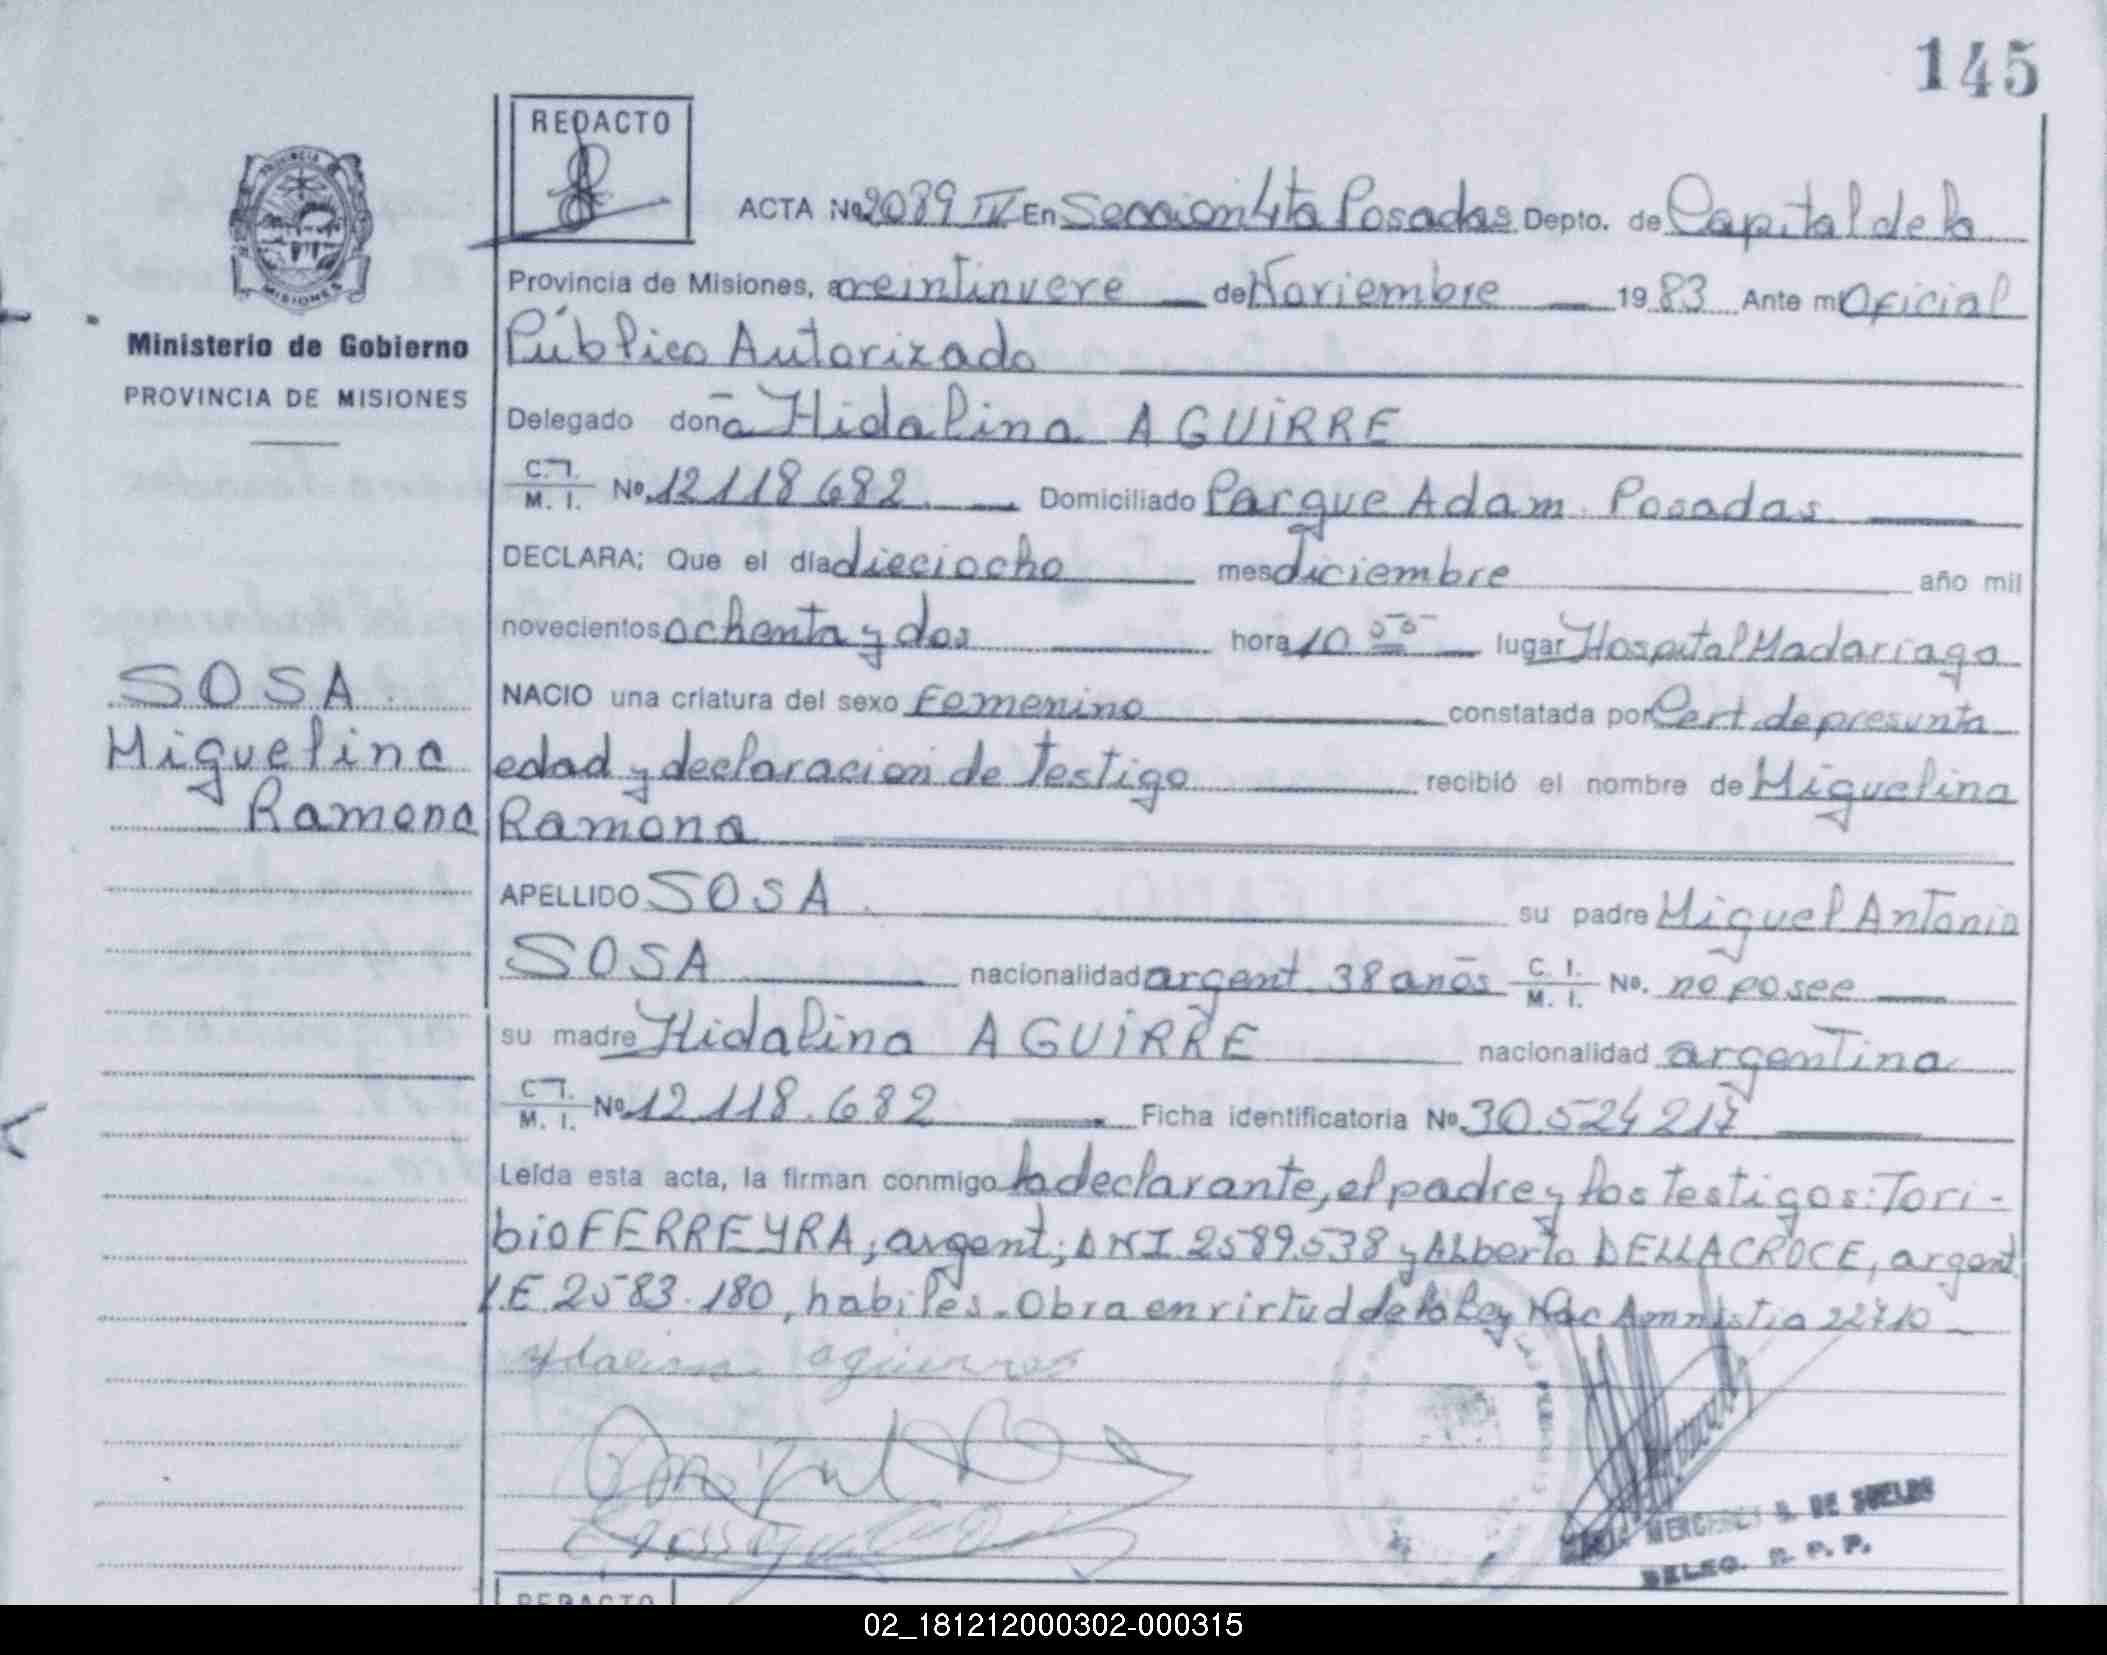 145
REDACTO
ACTA Nº 2089 IV En Seccion 4ta Posadas Depto. de Capital de la
Provincia de Misiones, a veintinueve de Noviembre 1983 Ante mi Oficial
Público Autorizado
Ministerio de Gobierno
PROVINCIA DE MISIONES
Delegado doña Hidalina AGUIRRE
C. I.
M. I. Nº 12118682 Domiciliado Parque Adam. Posadas
DECLARA; Que el día dieciocho mes diciembre año mil
novecientos ochenta y dos hora 10 00 lugar Hospital Madariaga
NACIO una criatura del sexo Femenino constatada por Cert. de presunta
edad y declaracion de testigo recibió el nombre de Miguelina
Ramona
SOSA
Miguelina
Ramona
APELLIDO SOSA su padre Miguel Antonio
SOSA nacionalidad argent. 38 años C. I. M. I. No. no posee
su madre Hidalina AGUIRRE nacionalidad argentina
C. I.
M. I. Nº 12.118.682 Ficha identificatoria Nº 30.524217
Leída esta acta, la firman conmigo la declarante, el padre y los testigos: Tori-
bio FERREYRA, argent; DNI 2589.538 y Alberto DELLACROCE, argent.
L.E. 2583.180, habiles. Obra en virtud de la Ley Nac Amnistia 22410
DE SUELDO
DELEG. R. P. P.
REDACTO
02_181212000302-000315